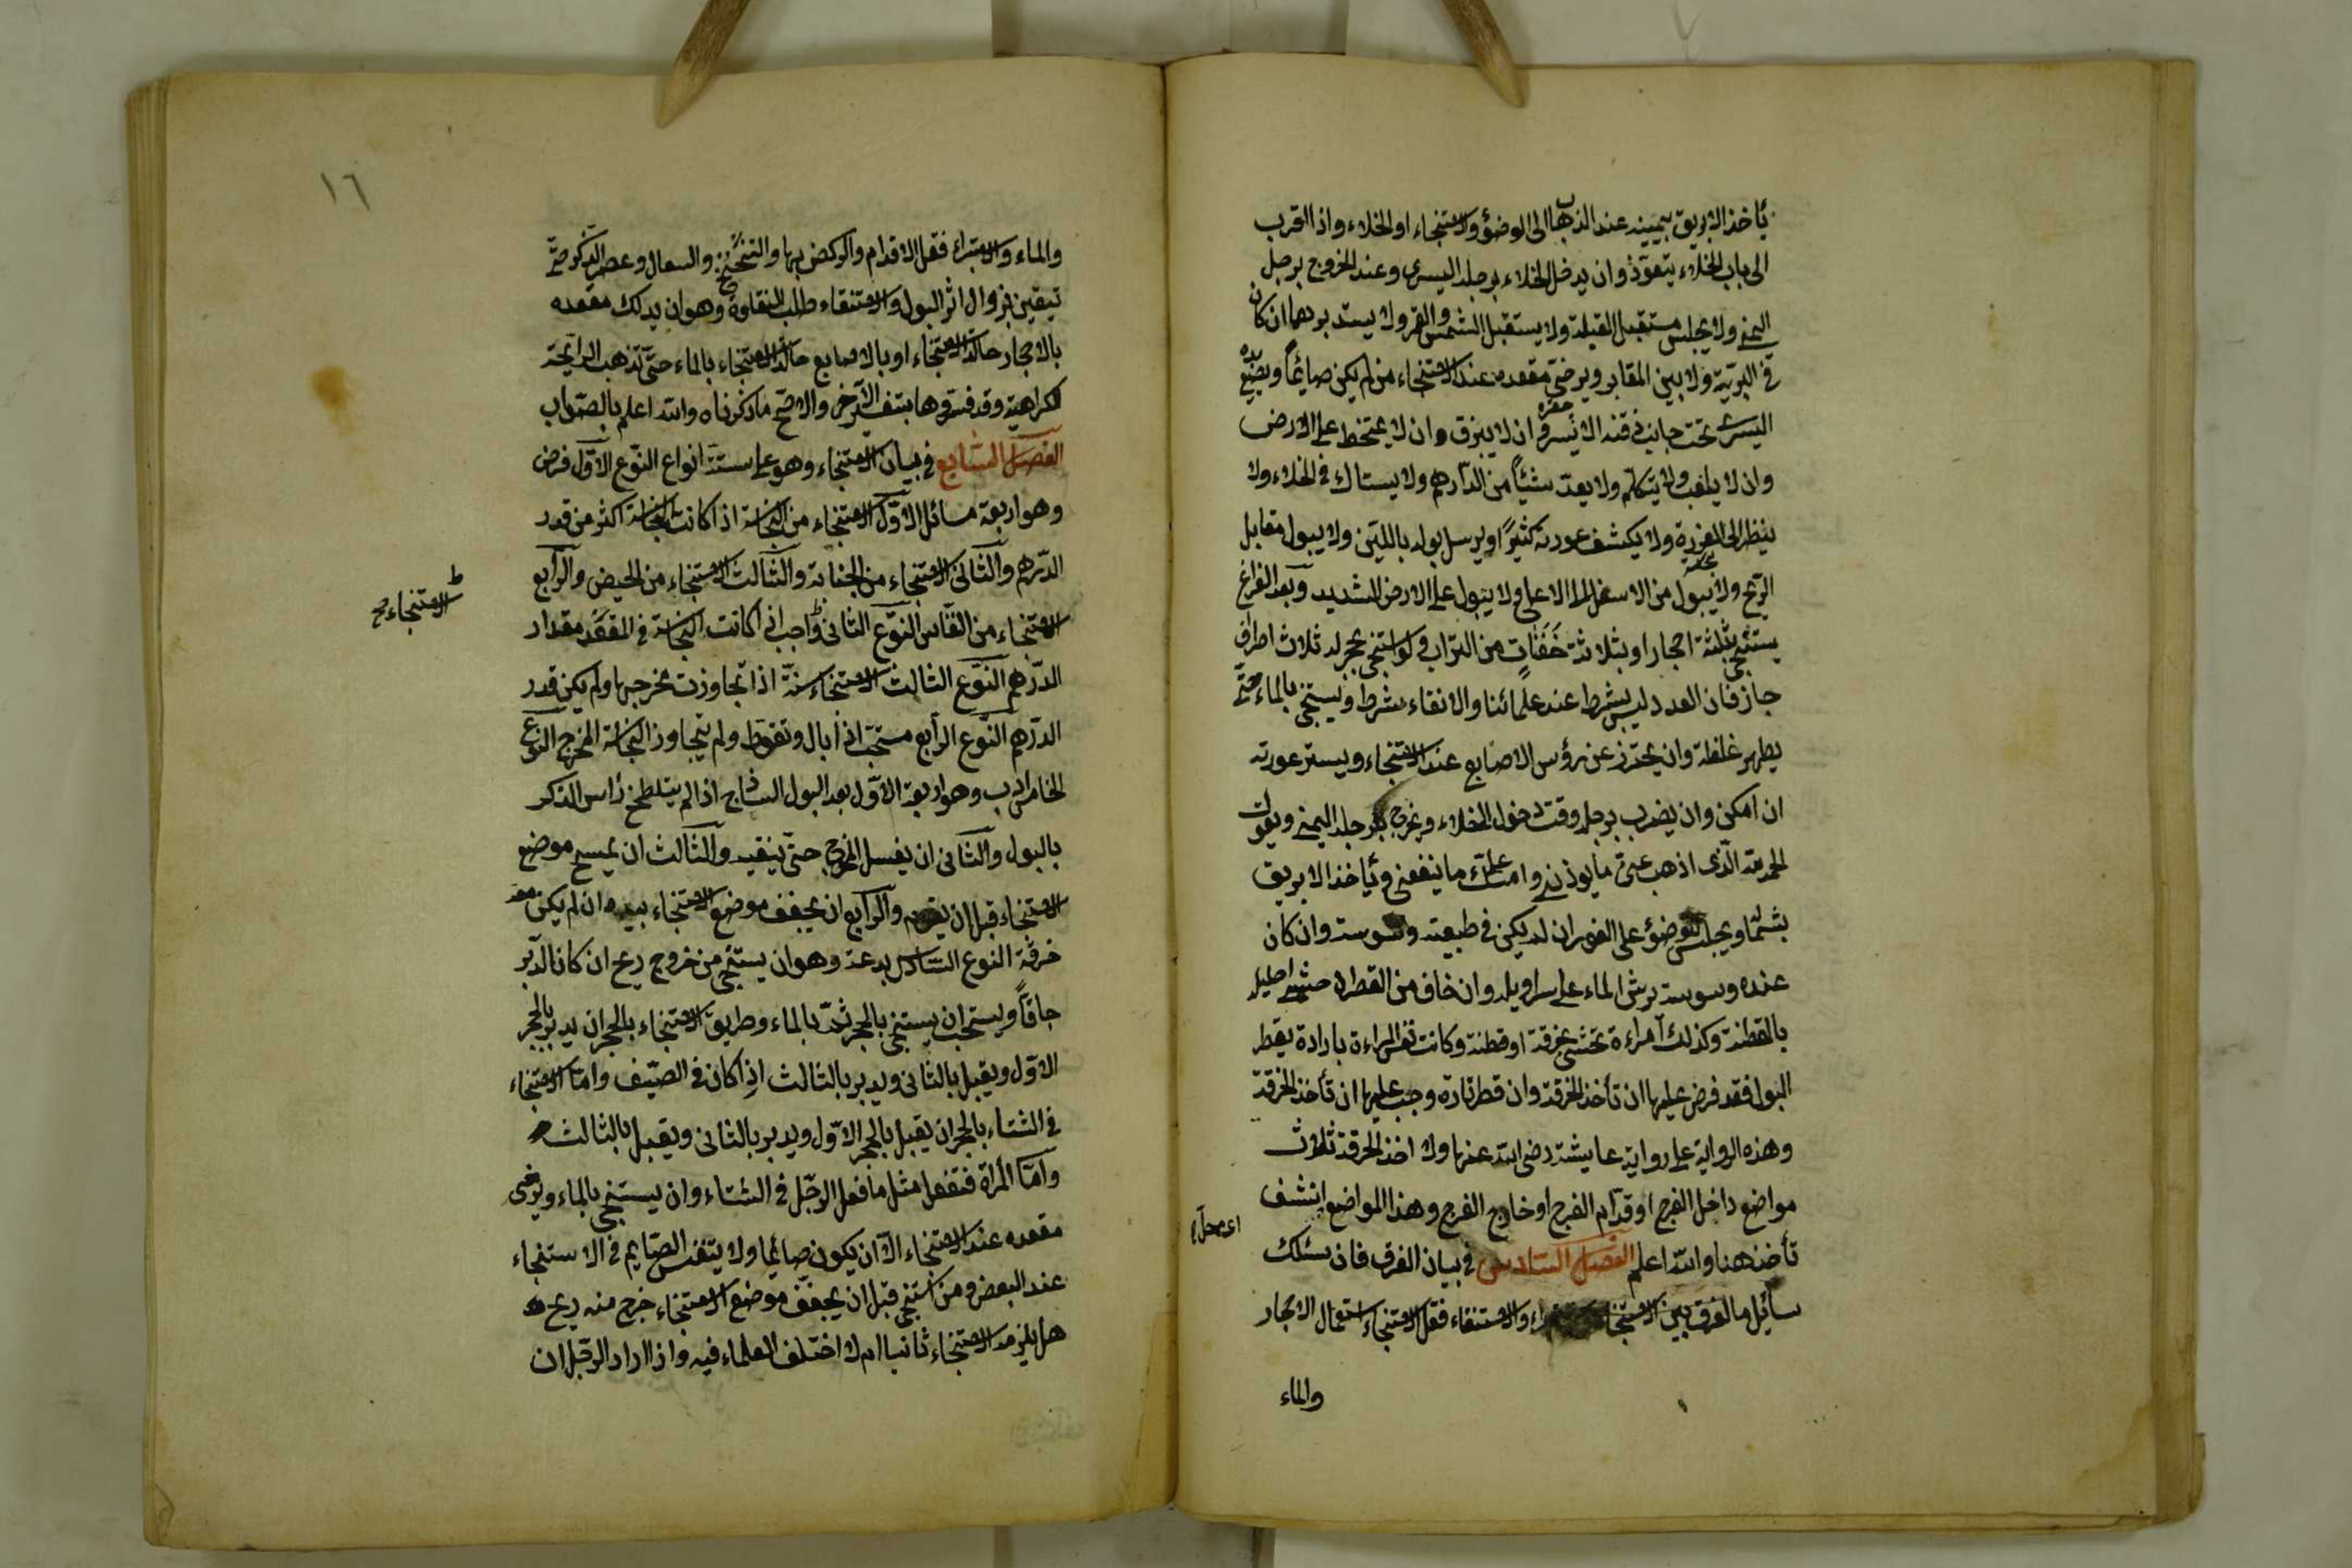 يأخذ الابريق بيمينه عند الذهاب الى الوضؤ والاستنجاء او الخلاء واذا اقرب
الى باب الخلاء يتعوّذ وان يدخل الخلاء برجله اليسرى وعند الخروج برجل
اليمنى ولا يجلس مستقبل القبلة ولا يستقبل الشمس والقمر ولا يستدبرهما ان كان
فى البرّيّة ولا بين المقابر ويرخى مقعده عند الاستنجاء من لم يكن صايمًا ويضع يده
اليسرى تحت جانب ذقنه الايسر وان لا يبزق وان لا يمتخط على الارض
وان لا يلعب ولا يتكلم ولا يعدّ شيئًا من الدّارهم ولا يستاك فى الخلاء ولا
ينظر الى العورة ولا يكشف عورته كثيرًا ويرسل بوله باللين ولا يبول مقابل
الريح ولا يبول من الاسفل الى الاعلى ولا يبول على الارض الشديد وبعد الفراغ
يستنجى بثلثة احجار او بثلاثة حفنات من التراب ولو استنجى بحجر له ثلاث اطراف
جاز فان العدد ليس بشرط عند علمائنا والانقاء شرط ويستنجى بالماء حتّى
يطهر غلظه وان يحترز عن رؤس الاصابع عند الاستنجاء ويستر عورته
ان امكن وان يضرب برجله وقت دخول الخلاء ويخرج برجله اليمنى ويقول
الحمد لله الّذى اذهب عنى ما يوذنى وامسك علىّ ما ينفعنى ويأخذ الابريق
بشماله ويجلس للوضؤ على الفور ان لم يكن فى طبيعته وسوسة وان كان
عنده وسوسة يرش الماء على سراويله وان خاف من القطران حشى احليل
بالقطنة وكذلك امراءة تحتشى بخرقة او قطنة وكانت نفس المراءة بارادة يقطر
البول فقد فرض عليها ان تأخذ الخرقة وان قطر تارة وجب عليها ان تأخذ الخرقة
وهذه الرواية على رواية عايشة رضى الله عنها ولا اخذ الخرقة ثلاث
مواضع داخل الفرج او قدّام الفرج او خارج الفرج وهذا المواضع انشف
تأخذ هنا والله اعلم الفصل السّادس فى بيان الفرق فان سئلك
سائل ما الفرق بين الاستنجاء والاستنقاء فقل الاستنجاء استعمال الاحجار
والماء
١٦
والماء والاستبراء فقل الاقدام والركض بها والتنحنح والسعال وعصر الذّكر حتّى
تيقين بزوال اثر البول والاستنقاء طلب النقاوة وهو ان يدلك مقعده
بالاحجار حالة الاستنجاء او بالاصابع حالة الاستنجاء بالماء حتّى تذهب الرايحة
الكراهية وقد فسّروها بتفسير الآخر والاصّح ما ذكرناه والله اعلم بالصّواب
الفصل السّابع فى بيان الاستنجاء وهو على ستة انواع النّوع الاوّل فرض
وهو اربعة مسائل الاوّل الاستنجاء من النجاسة اذا كانت النجاسة اكثر من قدر
الدّرهم والثّانى الاستنجاء من الجنابة والثّالث الاستنجاء من الحيض والرّابع
الاستنجاء من النّفاس النّوع الثانى واجب اذا كانت النجاسة فى المقعد مقدار
الدّرهم النّوع الثالث الاستنجاء سنّة اذا تجاوزت مخرجها ولم يكن قدر
الدّرهم النّوع الرّابع مستحبّ اذا بال وتغوّط ولم يتجاوز النجاسة المخرج النّوع
الخامس ادب وهو اربعة الاوّل بعد البول الساذج اذا لم يتلطخ رأس الذكر
بالبول والثّانى ان يغسل المخرج حتّى ينقيه والثّالث ان يمسح موضع
الاستنجاء قبل ان يقوم والرّابع ان يجفف موضع الاستنجاء بيده ان لم يكن معه
خرقة النوع السّادس بدعة وهو ان يستنجى من خروج ريح ان كان الدّبر
جافًّا ويستحب ان يستنجى بالحجر ثمّ بالماء وطريق الاستنجاء بالحجر ان يدبر بالحجر
الاوّل ويقبل بالثانى ويدبر بالثالث اذا كان فى الصّيف وامّا الاستنجاء
فى الشتاء بالحجر ان يقبل بالحجر الاوّل ويدبر بالثانى ويقبل بالثالث
وامّا المرأة فتفعل مثل ما فعل الرّجل فى الشتاء وان يستنجى بالماء ويرخى
مقعده عند الاستنجاء الّا ان يكون صائما ولا يتنفس الصّايم فى الاستنجاء
عند البعض ومن استنجى قبل ان يجفف موضع الاستنجاء خرج منه ريح
هل يلزمه الاستنجاء ثانيا ام لا اختلف العلماء فيه واذا اراد الرّجل ان